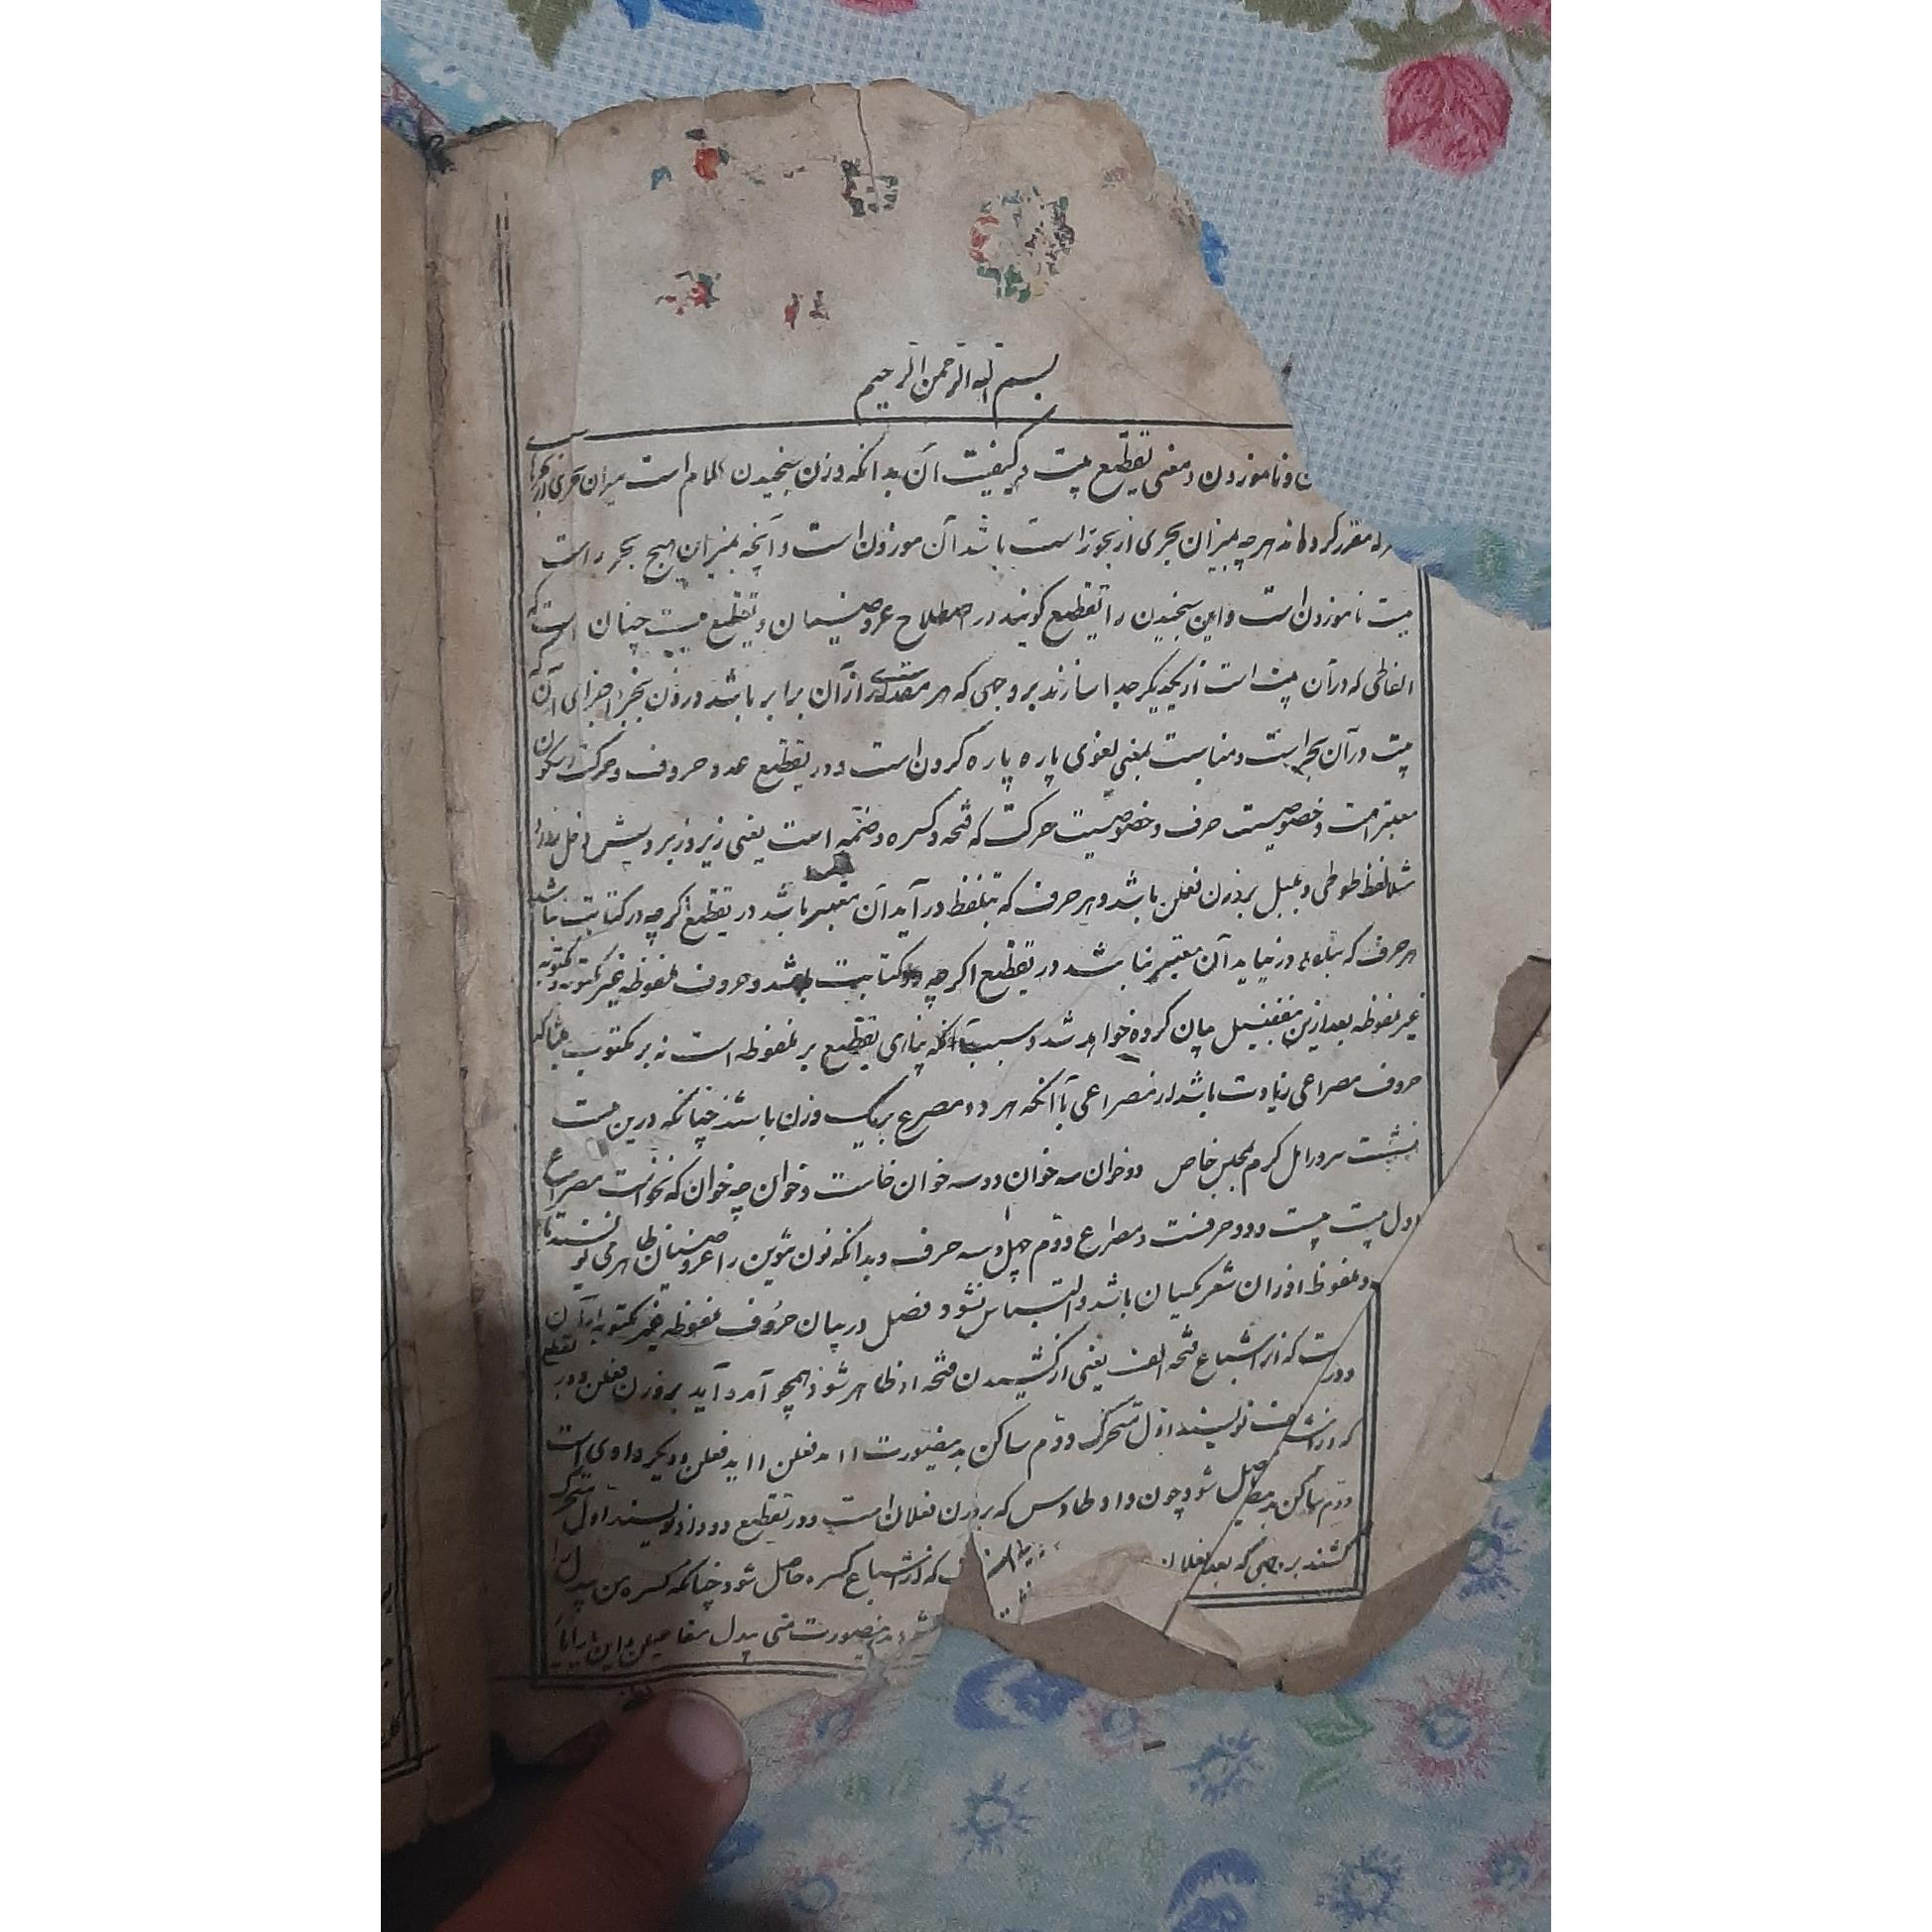 بسم الله الرحمن الرحیم
و ناموزون و معنی تقطیع بیت و کیفیت آن بدانکه وزن سنجیدن کلام است بمیزان بحری از بحرها
مقرر کرده اند هرچه بمیزان بحری از بحور راست باشد آن موزون است و آنچه بمیزان هیچ بحر راست
نیست ناموزون است و این سنجیدن را تقطیع گویند در اصطلاح عروضیان و تقطیع بیت چنان است که
الفاظی که در آن بیت است از یکدیگر جدا سازند بر وجهی که هر مقداری از آن برابر باشد در وزن بجزء از اجزای آن که
بیت در آن بحر است و مناسبت بمعنی لغوی پاره پاره کردن است و در تقطیع عدد حروف و حرکت و سکون
معتبر است و خصوصیت حرف و خصوصیت حرکت که فتحه و کسره و ضمه است یعنی زیر و زبر و پیش دخل ندارد
مثلا لفظ طوطی و بلبل بر وزن فعلن باشد و هر حرف که بتلفظ در آید آن معتبر باشد در تقطیع گرچه در کتابت نباشد
هر حرف که بتلفظ در نیاید آن معتبر نباشد در تقطیع اگرچه در کتابت باشد و حروف ملفوظه غیر مکتوبه و مکتوبه
غیر ملفوظه بعد ازین بتفصیل بیان کرده خواهد شد و سبب آنکه بنای تقطیع بر ملفوظه است نه بر مکتوب
حروف مصراعی زیادت باشد از مصراعی با آنکه هر دو مصرع بیک وزن باشند چنانکه درین بیت
نشست سرور اهل کرم بمجلس خاص دو خوان سه خوان و دو سه خوان خاست و خوان چه خوان که نخواست مصراع
اول بیت بیست و دو حرفست و مصراع دوم چهل و سه حرف و بدانکه نون تنوین را عروضیان ظاهر می نویسند تا
ملفوظ اوزان شعر یکسان باشد و التباس نشود فصل در بیان حروف ملفوظه غیر مکتوبه از آن
که از اشباع فتحه الف یعنی از کشیدن فتحه او ظاهر شود همچو آمد و آید بر وزن فعلن و در تقطیع
نویسند اول متحرک و دوم ساکن بدینصورت اامد فعلن اايد فعلن و دیگر واوی است
شود چون واو طاوس که بر وزن فعلان است و در تقطیع دو واو نویسند اول متحرک دوم ساکن
بر وجهی که بعد که از اشباع کسره حاصل شود چنانکه کسره من بیدل را
بدینصورت منی بیدل مفاعیلن و این یا را یای